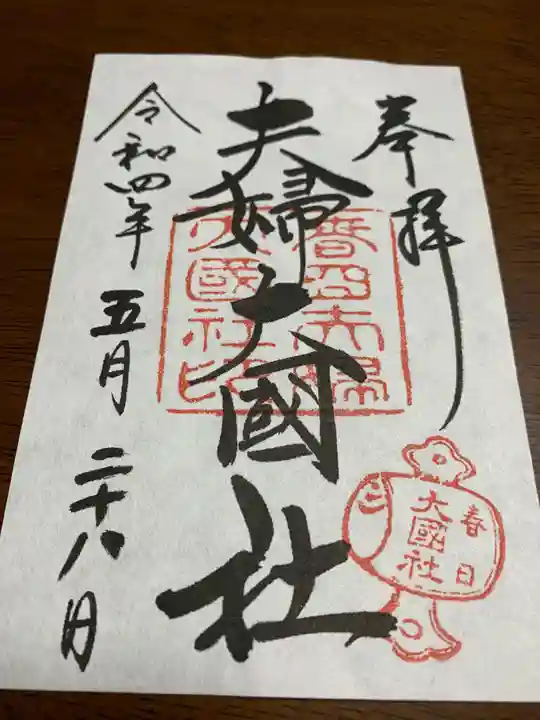 奉拝
夫婦大國社
春日夫婦
大國社印
春日
大國社
令和四年
五月
二十八日